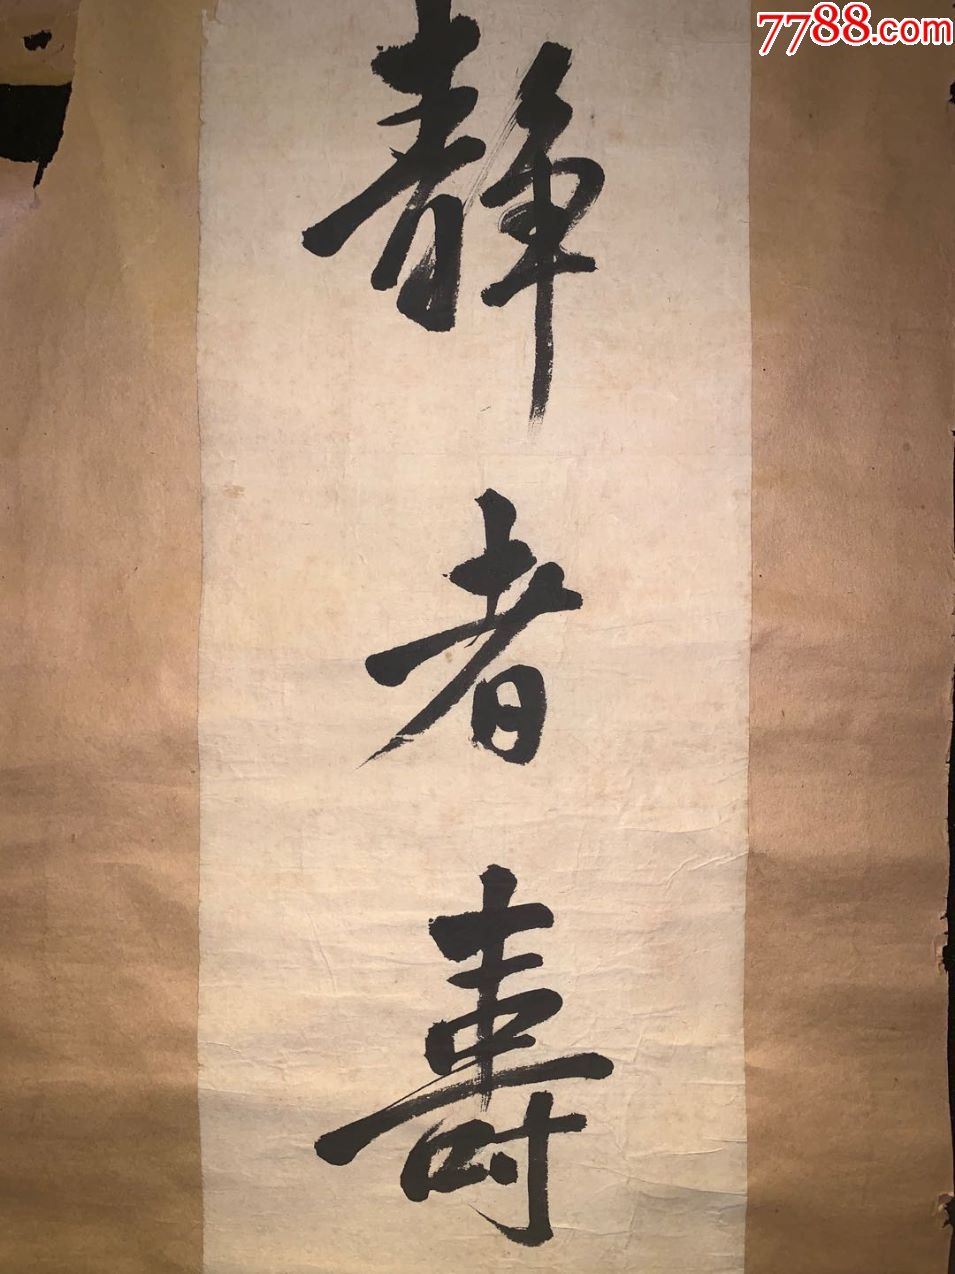 7788.com
静者寿